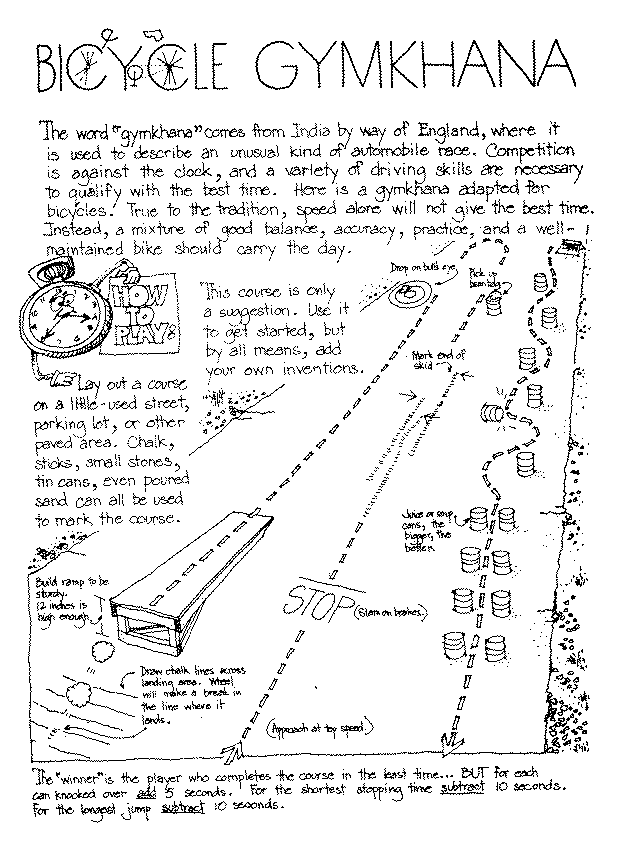 BICYCLE GYMKHANA
The word "gymkhana" comes from India by way of England, where it
is used to describe an unusual kind of automobile race. Competition
is against the clock, and a variety of driving skills are necessary
to qualify with the best time. Here is a gymkhana adapted for
bicycles. True to the tradition, speed alone will not give the best time.
Instead, a mixture of good balance, accuracy, practice, and a well-
maintained bike should carry the day.
HOW
TO
PLAY:
This course is only
a suggestion. Use it
to get started, but
by all means, add
your own inventions.
Lay out a course
on a little-used street,
parking lot, or other
paved area. Chalk,
sticks, small stones,
tin cans, even poured
sand can all be used
to mark the course.
Drop on bulls eye
Pick up
beanbag
Mark end of
skid
Juice or soup
cans, the
bigger, the
better.
Build ramp to be
sturdy.
12 inches is
high enough.
STOP
(Slam on brakes)
Draw chalk lines across
landing area. Wheel
will make a break in
the line where it
lands.
(Approach at top speed.)
The "winner" is the player who completes the course in the least time... BUT for each
can knocked over add 5 seconds. For the shortest stopping time subtract 10 seconds.
For the longest jump subtract 10 seconds.